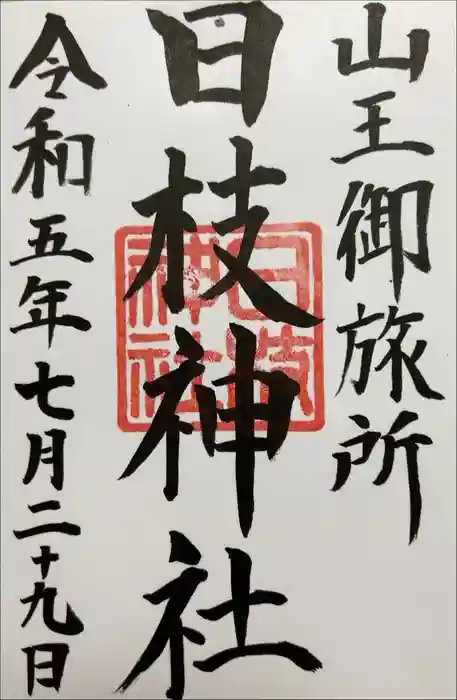 山王御旅所
日枝神社
日枝神社
令和五年七月二十九日